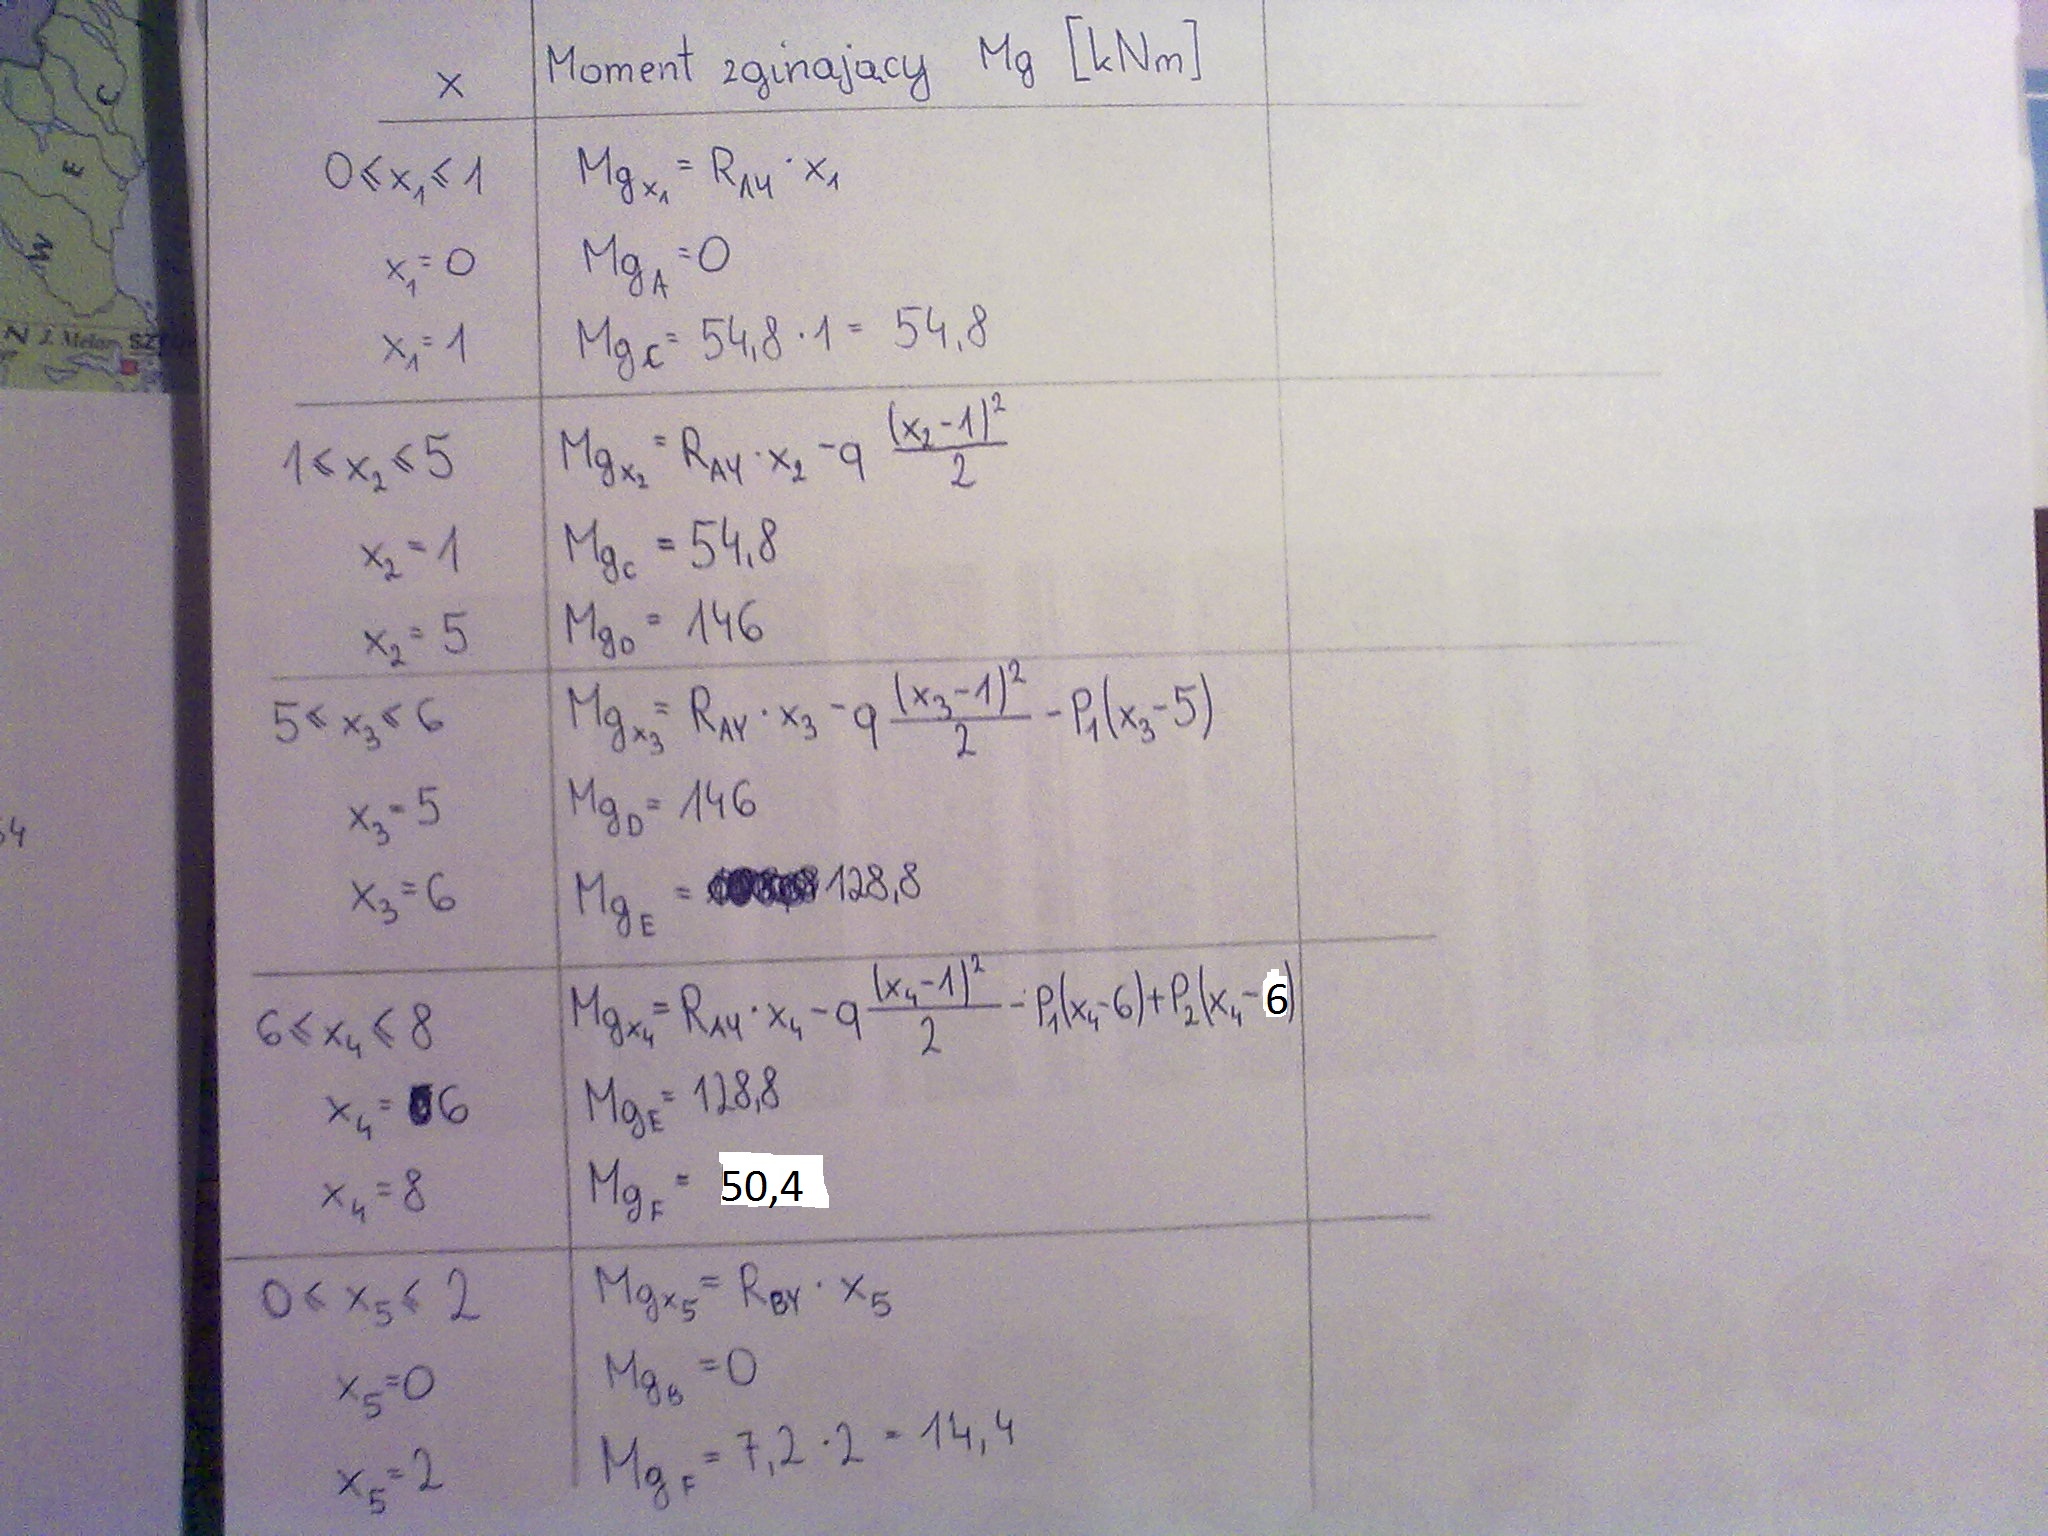 x Moment zginający Mg [kNm]
0 ≤ x₁ ≤ 1 Mg x₁ = R AY · x₁
x₁ = 0 Mg A = 0
x₁ = 1 Mg C = 54,8 · 1 = 54,8
1 ≤ x₂ ≤ 5 Mg x₂ = R AY · x₂ - q (x₂ - 1)² / 2
x₂ = 1 Mg C = 54,8
x₂ = 5 Mg D = 146
5 ≤ x₃ ≤ 6 Mg x₃ = R AY · x₃ - q (x₃ - 1)² / 2 - P₁(x₃ - 5)
x₃ = 5 Mg D = 146
x₃ = 6 Mg E = 128,8
6 ≤ x₄ ≤ 8 Mg x₄ = R AY · x₄ - q (x₄ - 1)² / 2 - P₁(x₄ - 6) + P₂(x₄ - 6)
x₄ = 6 Mg E = 128,8
x₄ = 8 Mg F = 50,4
0 ≤ x₅ ≤ 2 Mg x₅ = R BY · x₅
x₅ = 0 Mg B = 0
x₅ = 2 Mg F = 7,2 · 2 = 14,4
C
E
W
N
54